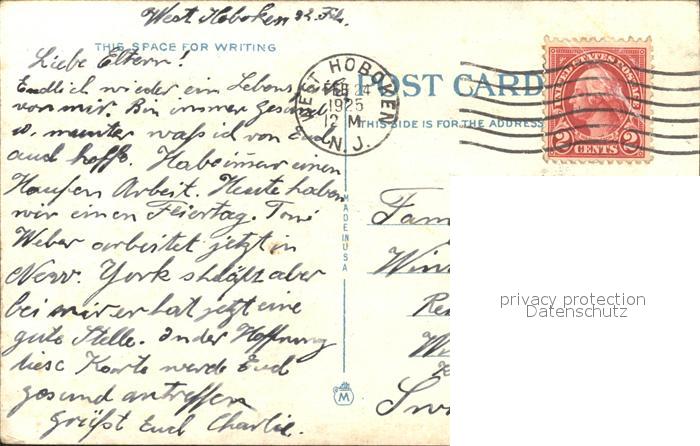 West Hoboken 22. Feb.
THIS SPACE FOR WRITING
Liebe Eltern!
Endlich wieder ein Lebens
von mir. Bin immer gesund
u. munter was ich von Euch
auch hoffe. Habe immer einen
Haufen Arbeit. Heute haben
wir einen Feiertag. Toni
Weber arbeitet jetzt in
New York schläft aber
bei mir er hat jetzt eine
gute Stelle. In der Hoffnung
diese Karte werde Euch
gesund antreffen
grüsst Euch Charlie.
WEST HOBOKEN
FEB 24
1925
12 M
N.J.
POST CARD
THIS SIDE IS FOR THE ADDRESS
MADE IN USA
M
UNITED STATES POSTAGE
2 CENTS 2
Fam
privacy protection
Datenschutz